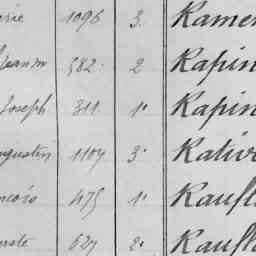 rie 1096 3. Kamer
Jeann 582. 2 Kapin
Joseph 311. 1. Kapin
ugustin 1107 3. Kativ
ncois 475 1. Kaufl
uste 627 2. Kaufl